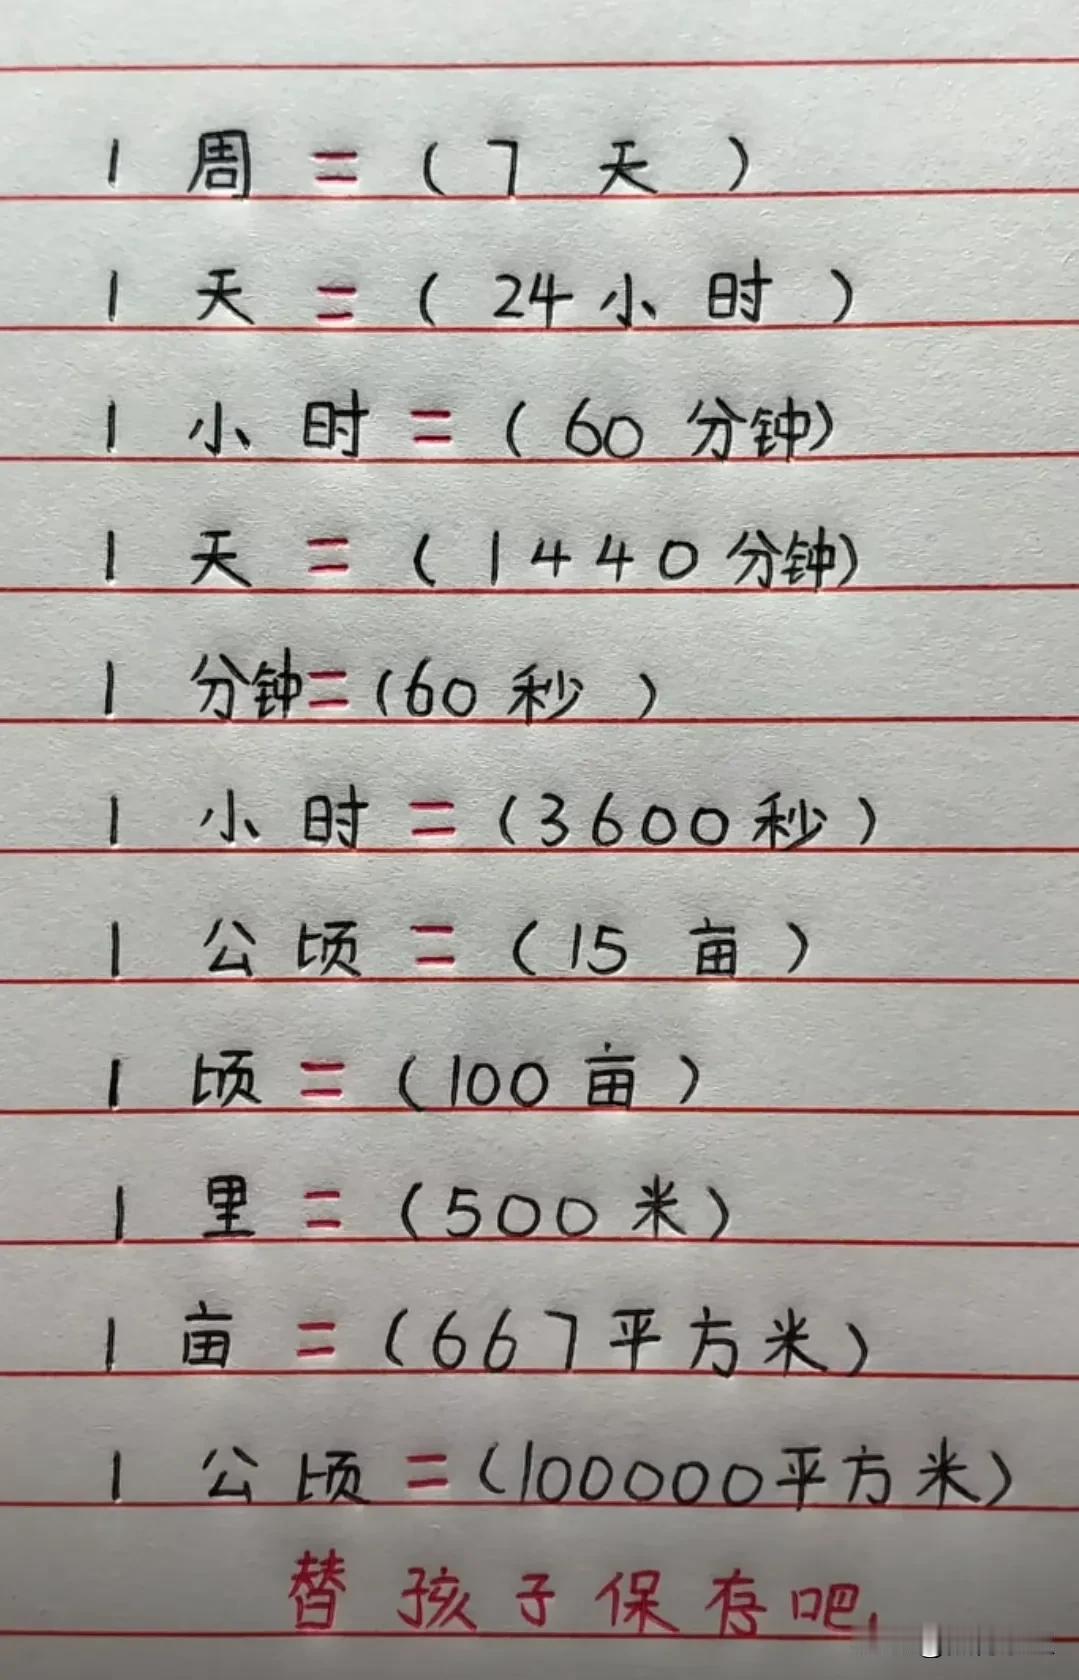 1 周 = ( 7 天 )
1 天 = ( 24 小 时 )
1 小 时 = ( 60 分钟)
1 天 = ( 1440 分钟)
1 分钟=(60 秒 )
1 小 时 = (3600 秒 )
1 公 顷 = (15 亩 )
1 顷 = (100 亩 )
1 里 = (500 米 )
1 亩 = (667 平 方 米 )
1 公 顷 = (100000 平 方 米 )
替 孩 子 保 存 吧,